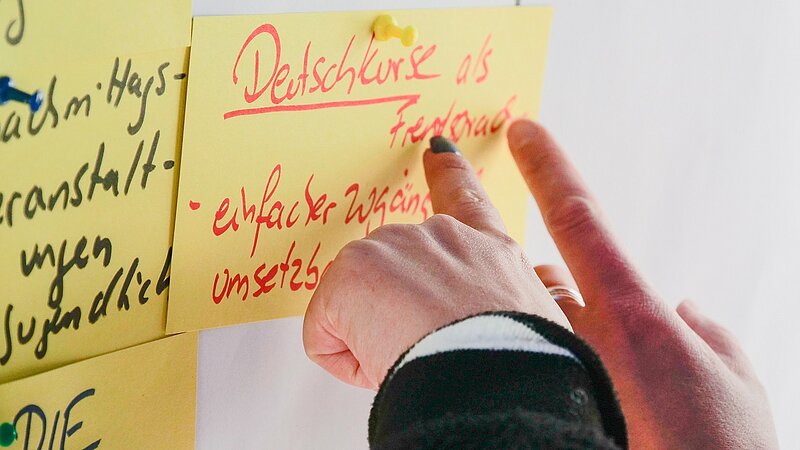 Nachmittags-
veranstalt-
ungen
Jugendlich
DIE
Deutschkurse als
Fremdsprach
- einfacher Zgäng
umsetzb